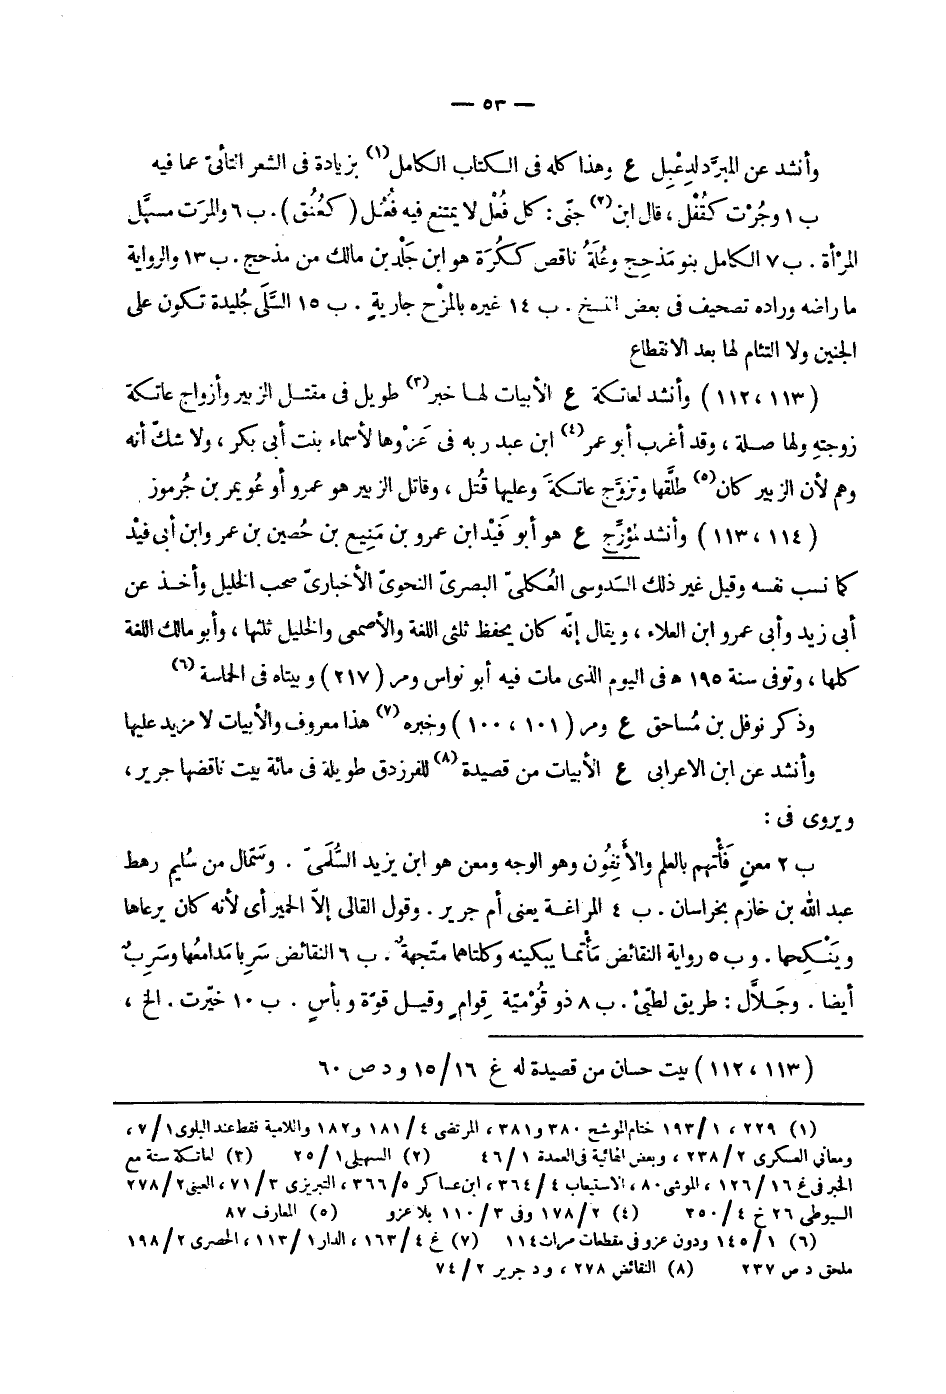 — ٥٣ —
وأنشد عن المبرَّد لدِعْبِل ع وهذا كله فى الكتاب الكامل(١) بزيادة فى الشعر التأنىّ عما فيه
ب ١ وجُرْت كقُفْل ، قال ابن(٢) جنّى : كل فُعْل لا يمتنع فيه فُعُل ( كعُنُق ) . ب ٦ والمرَت مسهَّل
المرْأة . ب ٧ الكامل بنو مَذحِج وعُلَةُ ناقص ككُرَة هو ابن جَلْد بن مالك من مذحج . ب ١٣ والرواية
ما راضه وراده تصحيف فى بعض النسخ . ب ١٤ غيره بالمَزْح جاريةٍ . ب ١٥ السَّلَى جُليدة تكون على
الجنين ولا التئام لها بعد الانقطاع
( ١١٣ ، ١١٢ ) وأنشد لعاتكة ع الأبيات لها خبر(٣) طويل فى مقتل الزبير وأزواج عاتكة
زوجتهِ ولها صلة ، وقد أغرب أبو عمر(٤) ابن عبد ربه فى عَزْوها لأسماء بنت أبى بكر ، ولا شكّ أنه
وهم لأن الزبير كان(٥) طلَّقها وتزوَّج عاتكةَ وعليها قُتل ، وقاتل الزبير هو عمرو أو عُويمر بن جُرموز
( ١١٤ ، ١١٣ ) وأنشد لمؤرَّج ع هو أبو فَيْد ابن عمرو بن مَنِيع بن حُصين بن عمر وابن أبى فيْد
كما نسب نفسه وقيل غير ذلك السَدوسى العُكلىّ البصرىّ النحوىّ الأخبارىّ صحب الخليل وأخذ عن
أبى زيد وأبى عمرو ابن العلاء ، ويقال إنّه كان يحفظ ثلثى اللغة والأصمعى والخليل ثلثها ، وأبو مالك اللغة
كلها ، وتوفى سنة ١٩٥ ه فى اليوم الذى مات فيه أبو نواس ومر ( ٢١٧ ) وبيتاه فى الحماسة (٦)
وذكر نوفل بن مُساحق ع ومر ( ١٠١ ، ١٠٠ ) وخبره(٧) هذا معروف والأبيات لا مزيد عليها
وأنشد عن ابن الاعرابى ع الأبيات من قصيدة(٨) للفرزدق طويلة فى مائة بيت ناقضها جرير ،
ويروى فى :
ب ٢ معنٍ فَأْتهم بالعلم والأَنِفُون وهو الوجه ومعن هو ابن يزيد السُّلَمىّ . وسَمّال من سُليم رهط
عبد الله بن خازم بخراسان . ب ٤ المراغة يعنى أم جرير . وقول القالى إلاّ الحمير أى لأنه كان يرعاها
ويَنْكِحها . و ب ٥ رواية النقائض مَأْتما يبكينه وكلتاهما متّجهةٌ . ب ٦ النقائض سَرِبا مَدامعُها وسَرِبٌ
أيضا . وجَلاَّل : طريق لطيّئ . ب ٨ ذو قُوْميّة قِوامٍ وقيل قوّة وبأس . ب ١٠ خيّرت . الخ ،
( ١١٣ ، ١١٢ ) بيت حسان من قصيدة له غ ١٦ / ١٥ و د ص ٦٠
(١) ٢٢٩ ، ١ / ١٩٣ ختام الموشح ٣٨٠ و ٣٨١ ، المرتضى ٤ / ١٨١ و ١٨٢ واللامية فقط عند البلوى ١ / ٧ ،
ومعانى العسكرى ٢ / ٢٣٨ ، وبعض الهائية فى العمدة ١ / ٤٦ (٢) السهيلى ١ / ٢٥ (٣) لعاتكة ستة مع
الخبر فى غ ١٦ / ١٢٦ ، الموشى ٨٠ ، الاستيعاب ٤ / ٣٦٤ ، ابن عساكر ٥ / ٣٦٦ ، التبريزى ٣ / ٧١ ، العينى ٢ / ٢٧٨
السيوطى ٢٦ خ ٤ / ٣٥٠ (٤) ٢ / ١٧٨ وفى ٣ / ١١٠ بلا عزو (٥) المعارف ٨٧
(٦) ١ / ١٤٥ ودون عزو فى مقطعات مراث ١١٤ (٧) غ ٤ / ١٦٣ ، الدار ١ / ١١٣ ، الحصرى ٢ / ١٩٨
ملحق د ص ٢٣٧ (٨) النقائض ٢٧٨ ، و د جرير ٢ / ٧٤